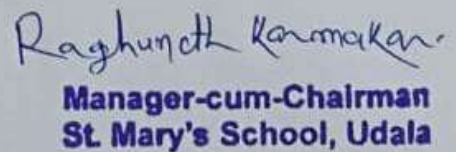 Raghunath Karmakar.
Manager-cum-Chairman
St. Mary's School, Udala